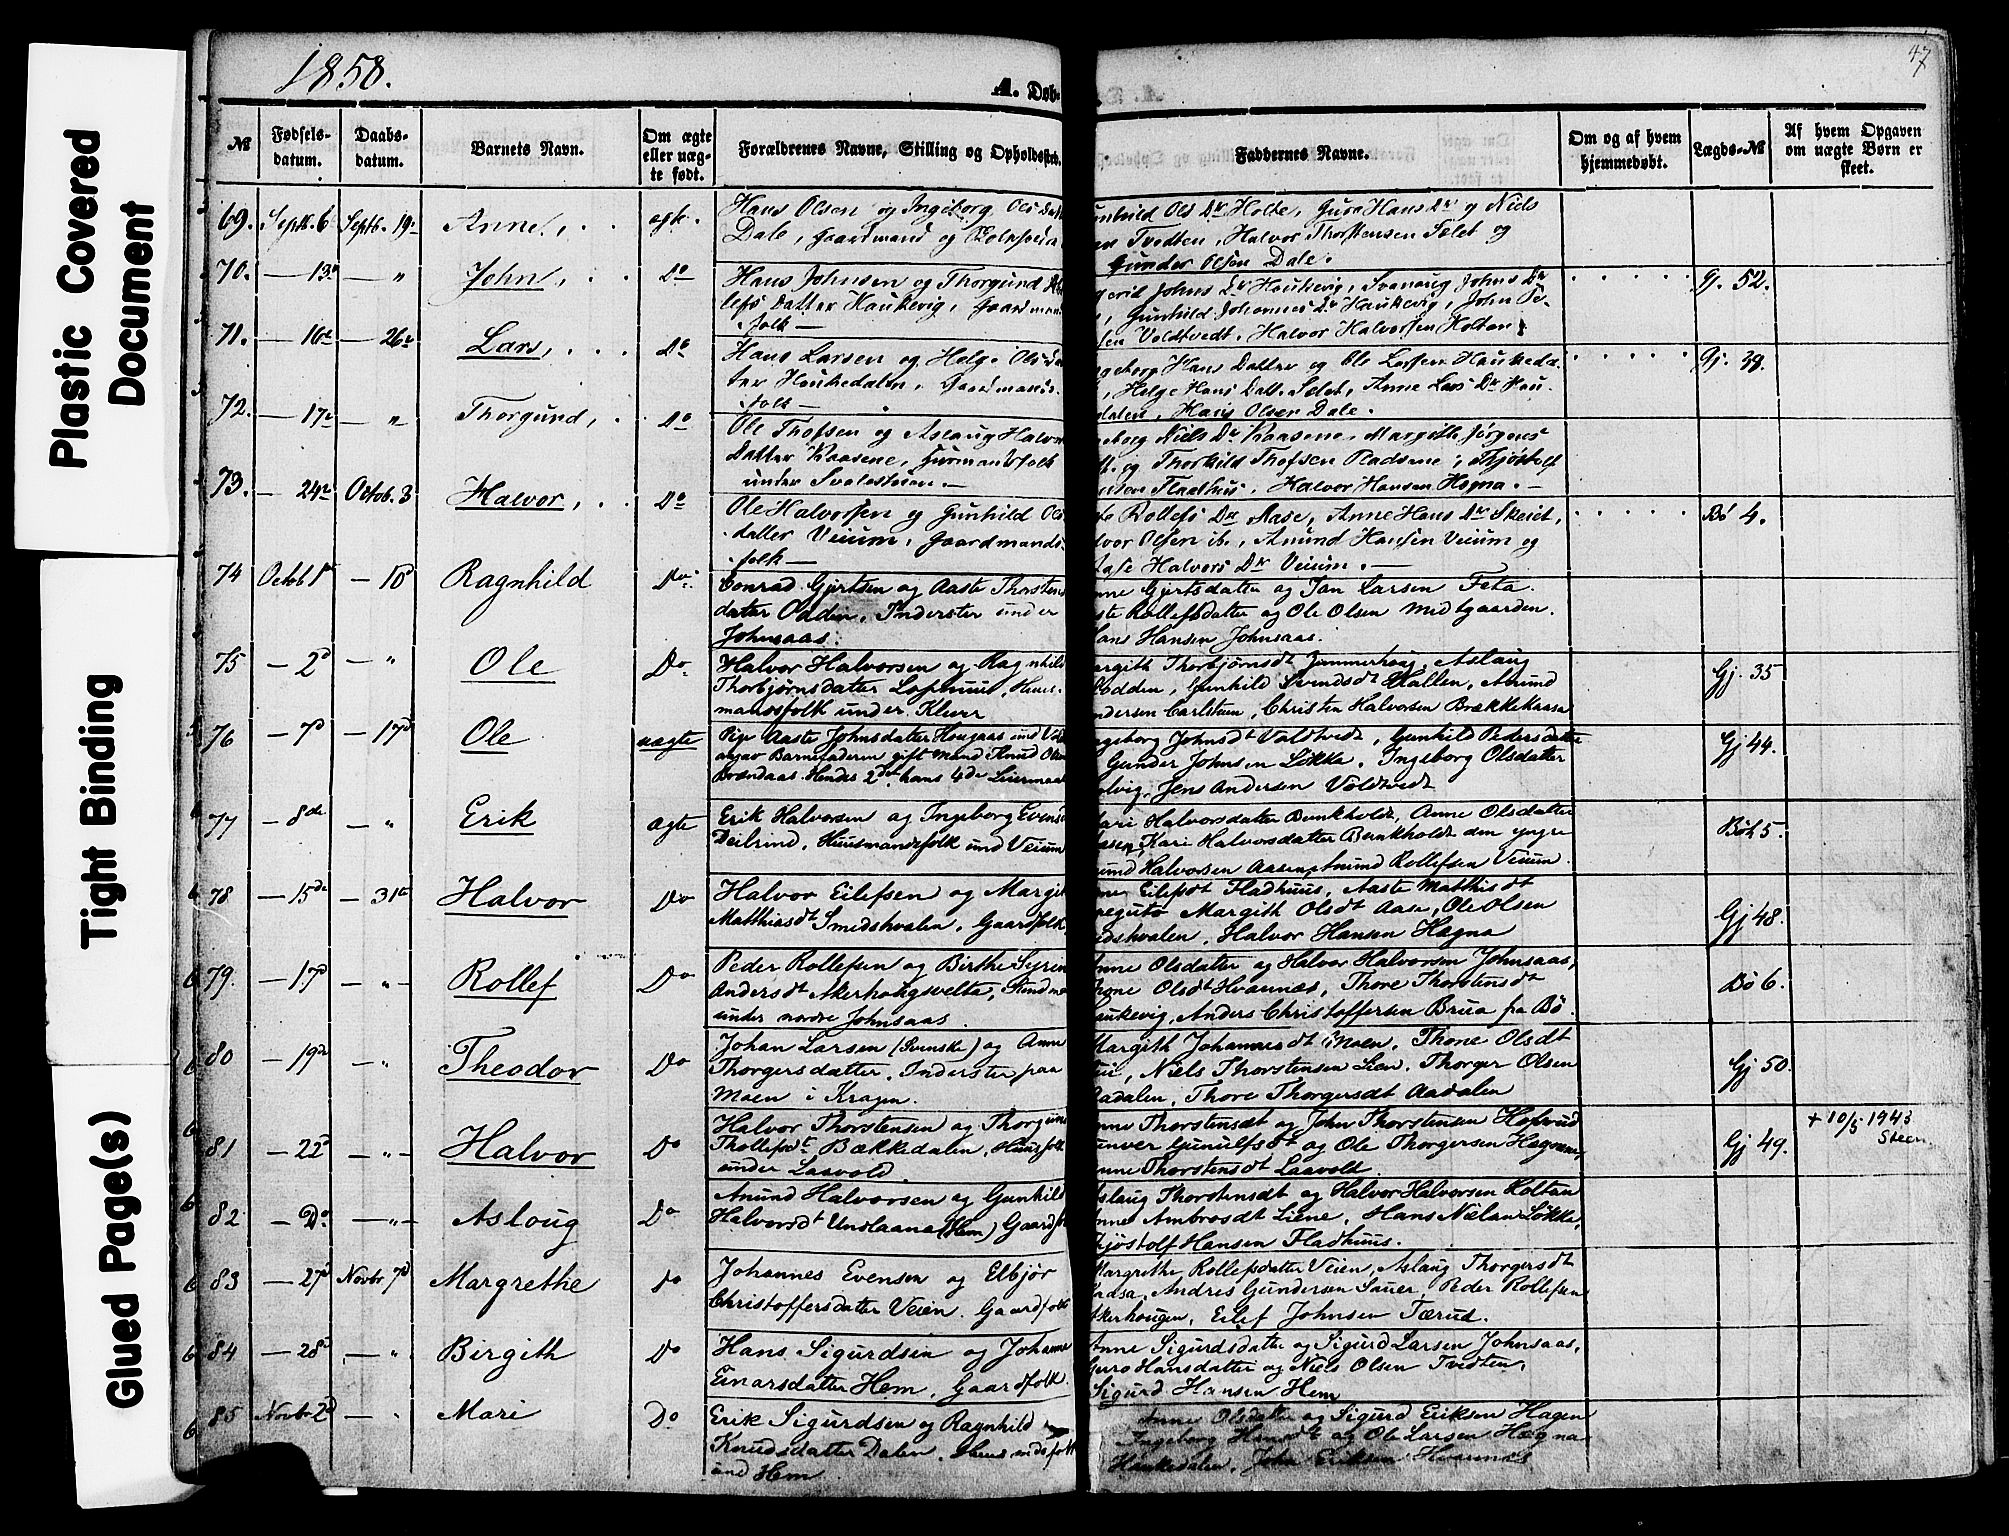 Plastic Covered
Document
Tight Binding
Glued Page(s)
1858.
47
A. Døb-
№
Fødsels-
datum.
Daabs-
datum.
Barnets Navn.
Om ægte
eller uæg-
te født.
Forældrenes Navne, Stilling og Opholdssted.
Faddernes Navne.
Om og af hvem
hjemmedøbt.
Lægds-№
Af hvem Opgaven
om uægte Børn er
skeet.
69. Septb. 6 Septb. 19de Anne, . . ægte. Hans Olsen og Ingeborg Ols Datt
Dale, Gaardmand og
Gunhild Ols Dr Holte, Guro Hans Dr og Niels
Tvedten, Halvor Thorstensen Sælet og
Gunder Olsen Dale.
70. — 13de — " John, . . Do Hans Johnsen og Thorgund
lefs Datter Haukevig, Gaardmands
folk —
Johns Dr Haukevig, Svanaug Johns Dr
Gunhild Johannes Dr Haukevig, John
Voldtvedt. Halvor Halvorsen Holtan
Gj. 52.
71. — 16de — 26de Lars, . . . Do Hans Larsen og Helge Ols Dat
ter Haukedalen, Gaardmands-
folk —
Hans Datter og Ole Larsen Haukeda
, Helge Hans Datt. Sælet, Anne Lars Dr Hau
dalen, Hans Olsen Dale.
Gj. 39.
72. — 17de — " Thorgund, . Do Ole Thofsen og Aslaug Halvor
Datter Kaasene, Huusmandsfolk
under Svalesteien. —
Niels Dr Kaasene, Margith Jørgens
og Thorkild Thofsen Kaasene, Thjøstolf
Fladhus, Halvor Hansen Hegna. —
73. — 24de Octob. 3 Halvor, . . Do Ole Halvorsen og Gunhild Ols
datter Veium, Gaardmands-
folk —
Rollefs Dr Aase, Anne Hans Dr Skeiet,
Olsen ib., Anund Hansen Veium og
Aase Halvors Dr Veium. —
Bø 4.
74 Octob 1st — 10d Ragnhild Do Conrad Gjertsen og Aaste Thorstens
datter Odden, Inderster under
Johnsaas.
Gjertsdatter og Jan Larsen Feta.
Rollefsdatter og Ole Olsen Midtgaarden.
Hans Hansen Johnsaas.
75 — 2d — " Ole Do Halvor Halvorsen og Ragnhild
Thorbjørnsdatter Lophuus, Huus-
mandsfolk under Klever
Margith Thorbjørnsdt Jammerhoug, Aslaug
Rodden, Gunhild Svendsdt Hallen, Anund
Andersen Carlsteen, Christen Halvorsen Brækkekaasa
Gj. 35
76 — 7d — 17d Ole uægte Pige Aaste Johnsdatter Hougaas und Vold
angav Barnefaderen gift Mand Knud Olsen
Brændaas. Hendes 2det hans 4de Leiermaal
Ingeborg Johnsdt Voldtvedt, Gunhild Pedersdatter
Gunder Johnsen Løkka, Ingeborg Olsdatter
Jens Andersen Voldtvedt
Gj 44.
77 — 8de — " Erik ægte Erik Halvorsen og Ingeborg Evensd
Deilrind, Huusmandsfolk und Veium
Kari Halvorsdatter Bunkholdt, Anne Olsdatter
Aasen, Kari Halvorsdatter Bunkholdt den yngre
Halvorsen Aasen, Anund Rollefsen Veium.
Bø 5.
78 — 15de — 31te Halvor Do Halvor Eilefsen og Margit
Matthiasdt Smedshvalen. Gaardfolk
Eilefsdt Fladhuus, Aaste Matthisdt
Margith Olsdt Aase, Ole Olsen
Smedshvalen, Halvor Hansen Hægna
Gj 48.
79. — 17d — " Rollef Do Peder Rollefsen og Birthe Syrin
Andersdt Akerhougsvelta,
under nordre Johnsaas.
Anne Olsdatter og Halvor Halvorsen Johnsaas,
Thone Olsdt Hvannæs, Thore Thorstensdt
Haukevig, Anders Christoffersen Brua fra Bø.
Bø 6.
80 — 19d — " Theodor Do Johan Larsen (Svenske) og Anne
Thorgersdatter, Inderster paa
Moen i Kragen.
Margith Johannesdt Moen, Thone Olsdt
, Niels Thorstensen Lien, Thorger Olsen
Aadalen, Thore Thorgersdt Aadalen
Gj 50.
81 — 22d — " Halvor Do Halvor Thorstensen og Thorgund
Thollefsdt Bækkedalen, Huusfolk
under Laavold.
Anne Thorstensdt og John Thorstensen
Gunver Gunulfsdt og Ole Thorgersen Hægna,
Anne Thorstensdt Laavold.
Gj 49.
+ 10/5 1943
Steen
82 — Do — " — Aslaug Do Anund Halvorsen og Gunhild
Halvorsdt Unslaana (Hem) Gaardfo
Aslaug Thorstensdt og Halvor Halvorsen Holtan
Anne Ambrosdt Liene, Hans Nielsen Løkka,
Thjøstolf Hansen Fladhuus.
83 — 27d Novbr 7d Margrethe do Johannes Evensen og Elbjør
Christoffersdatter Veien. Gaardfolk
Margrethe Rollefsdatter Veien, Aslaug Thorgersdt
, Andres Gundersen Sauer, Peder Rollefsen
Akerhougen, Eilef Johnsen Tærud.
84 — 28d — " Birgith Do Hans Sigurdsen og Johanne
Einarsdatter Hem, Gaardfolk.
Anne Sigurdsdatter og Sigurd Larsen Johnsaas,
Guro Hansdatter og Niels Olsen Tvedten,
Sigurd Hansen Hem
85 Novbr 2d — " Mari Do Erik Sigurdsen og Ragnhild
Knudsdatter Dalen. Huusmandsfolk
und Hem
Anne Olsdatter og Sigurd Eriksen Hagen
Ingeborg Hansdt og Ole Larsen Hægna
Haukedalen, John Eriksen Hvannæs